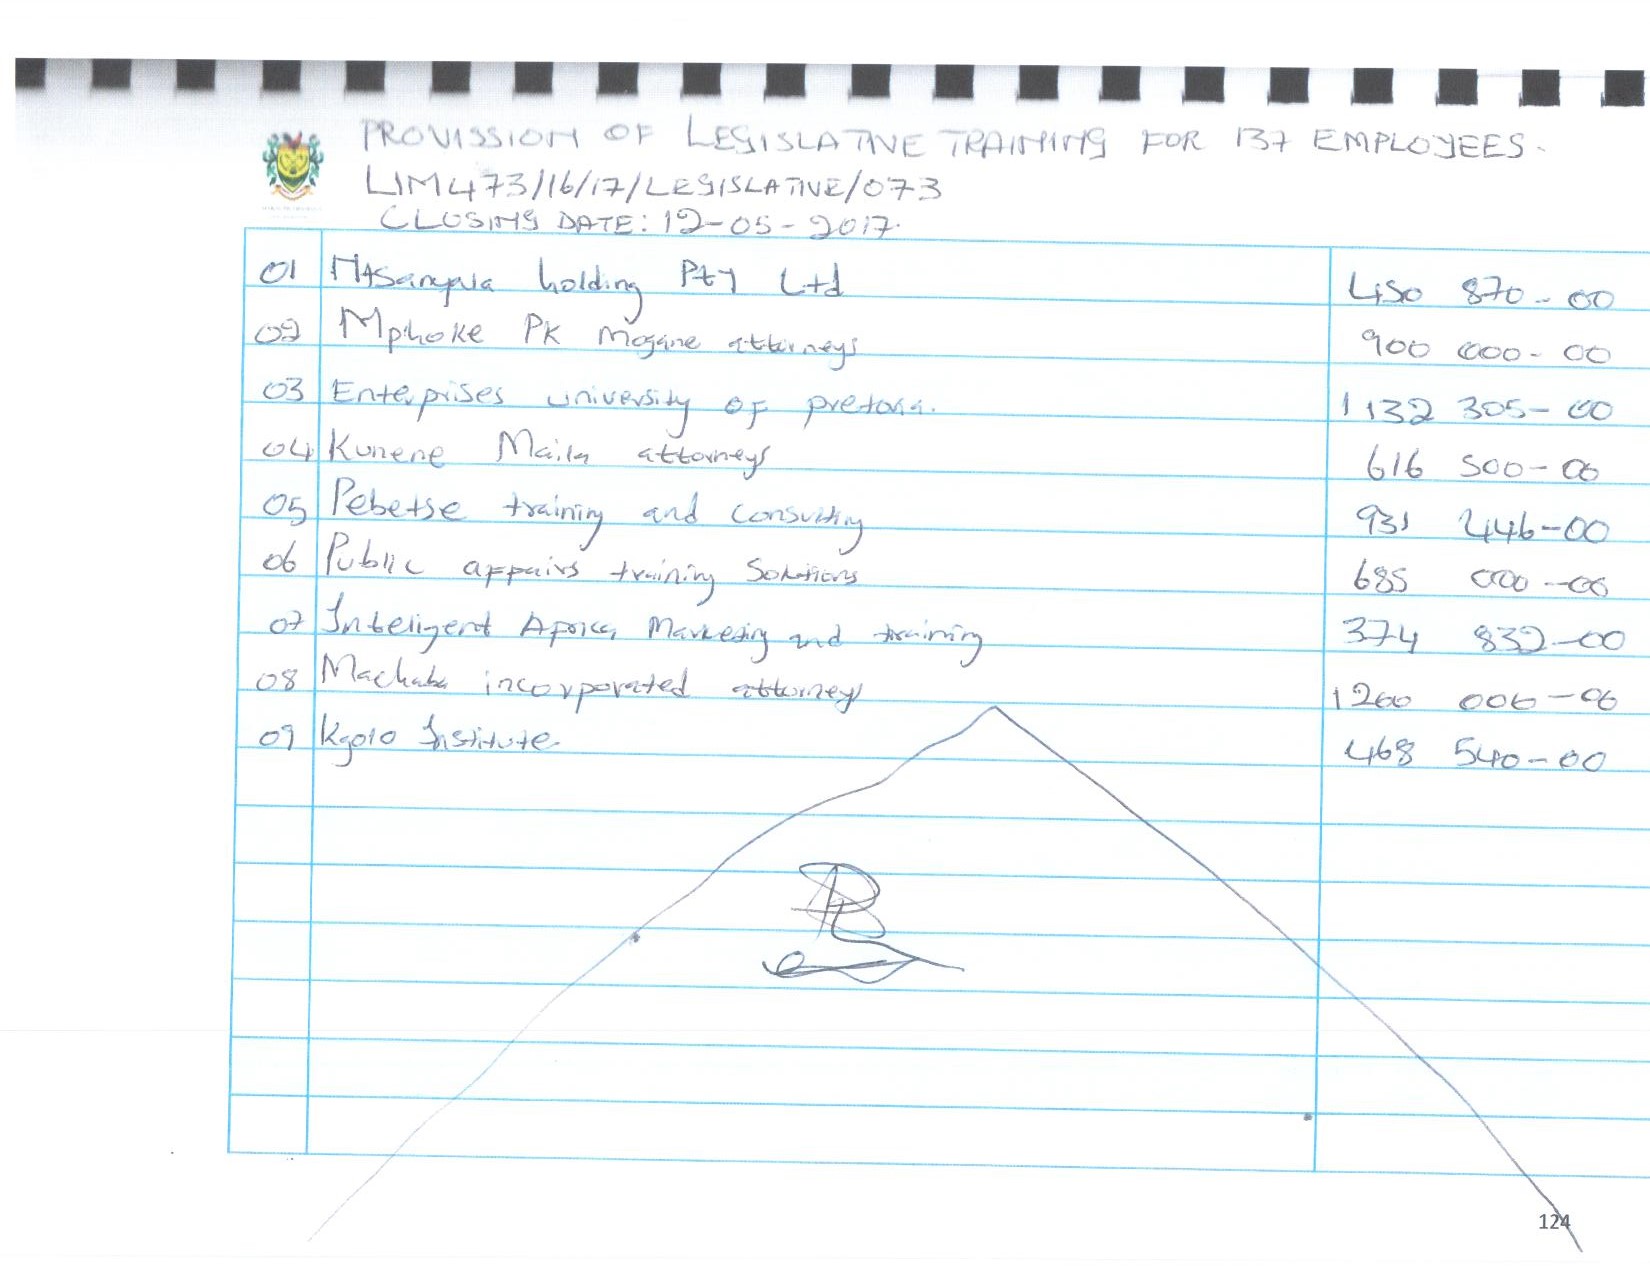 PROVISSION OF LEGISLATIVE TRAINING FOR 137 EMPLOYEES.
LIM473/16/17/LEGISLATIVE/073
CLOSING DATE: 12-05-2017.
01 holding Pty Ltd 450 870-00
02 Mphoke PK Mogane attorneys 900 000-00
03 Enterprises university of pretoria. 1 132 305-00
04 Kunene Maila attorneys 616 500-00
05 Pebetse training and consulting 931 446-00
06 Public affairs training Solutions 685 000-00
07 Inteligent Africa Marketing and training 374 832-00
08 Machaba incorporated attorneys 1 200 000-00
09 Kgolo Institute. 468 540-00
124